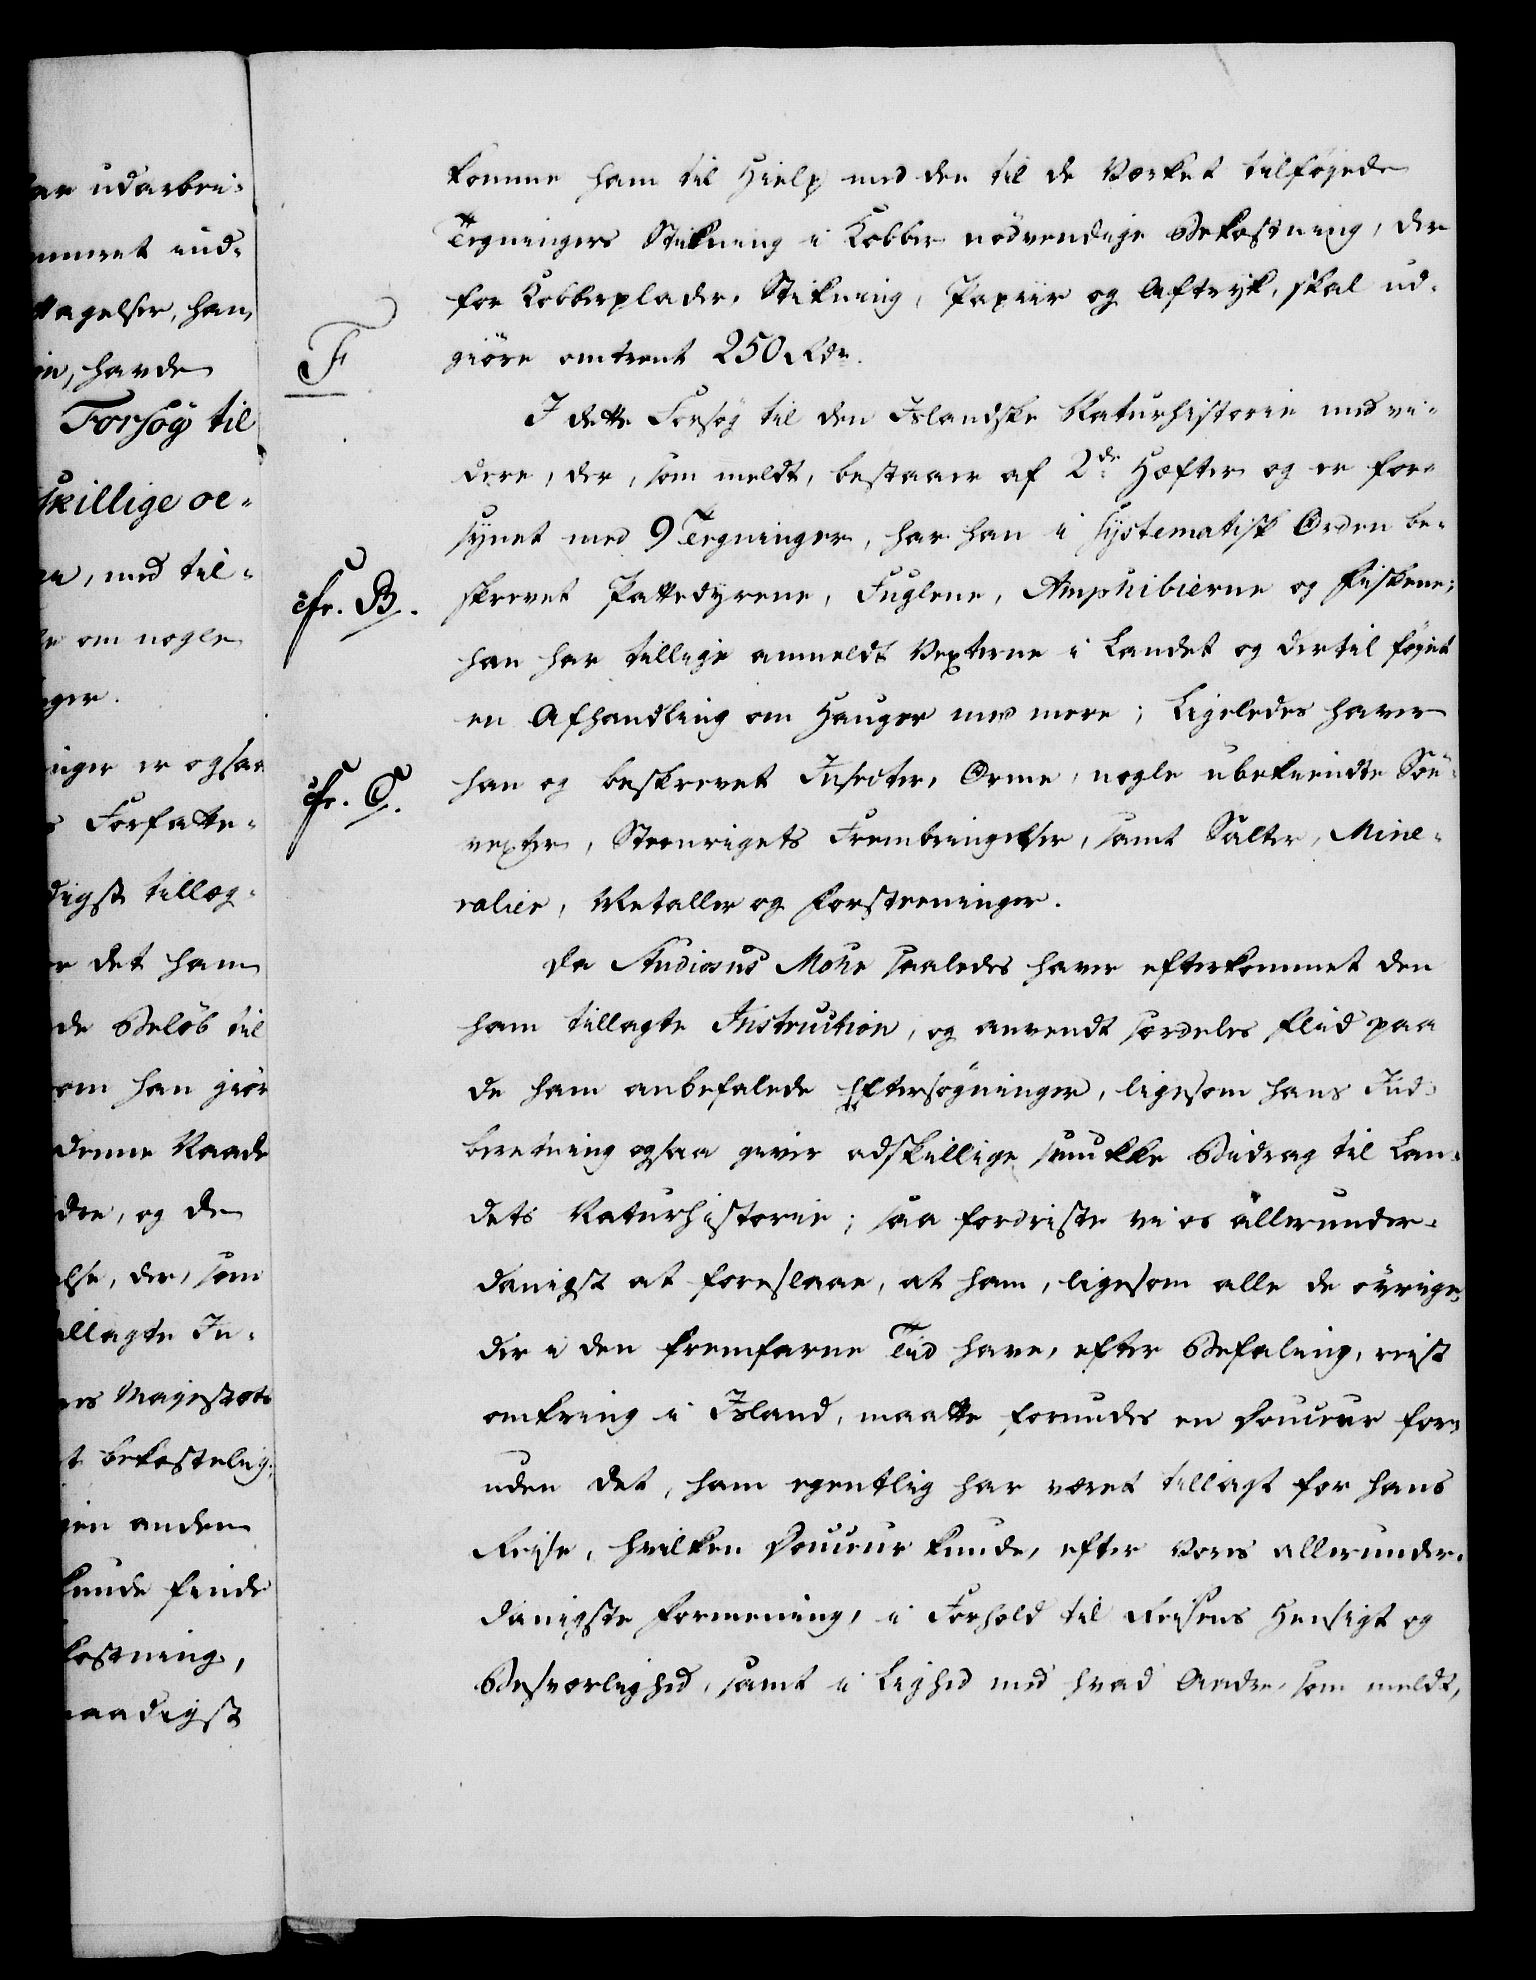 ar udarbei-
mmeret ind-
ttagelser, han
in, havde
Forsøg til
skillige oe-
ei, med til-
le om nogle
nger.
inger er ogsaa
s Forfatte-
digst tillæg-
er det ham
de Beløb til
om han giør
denne Maade
dre, og de
else, der, som
illagte In-
ers Majestæts
t bekostelig,
gen anden
kunde finde
kostning,
naadigst
komme ham til Hielp med den til de Værket tilføjede
Tegningers Stikning i Kobber nödvendige Bekostning, der
for Kobberplader, Stikning, Papiir og Aftryk, skal ud-
F
giöre omtrent 250 Rdr.
I dette Forsøg til den Islandske Naturhistorie med vi-
dere, der, som meldt, bestaaer af 2de Hæfter og er for-
synet med 9 Tegninger, har han i systematisk Orden be-
cfr. B.
skrevet Pattedyrene, Fuglene, Amphibierne og Fiskene;
han har tillige anmeldt Vexterne i Landet og dertil föjet
en Afhandling om Hauger med mere; Ligeledes haver
cfr. C.
han og beskrevet Insecter, Orme, nogle ubekiendte Söe-
vexter, Steenrigets Frembringelser, samt Salter, Mine-
ralier, Metaller og Forsteeninger.
Da Studiosus Mohr saaledes haver efterkommet den
ham tillagte Instruction, og anvendt særdeles Flid paa
de ham anbefalede Eftersøgninger, ligesom hans Ind-
beretning ogsaa giver adskillige smukke Bidrag til Lan-
dets Naturhistorie; saa fordriste vi os allerunder-
danigst at foreslaae, at ham, ligesom alle de övrige,
der i den fremfarne Tid have, efter Befaling, reist
omkring i Island, maatte forundes en Douceur for-
uden det, ham egentlig har været tillagt for hans
Reise, hvilken Douceur kunde, efter Vores allerunder-
danigste Formening, i Forhold til Reisens Hensigt og
Besværlighed, samt i Lighed med hvad Andre, som meldt,